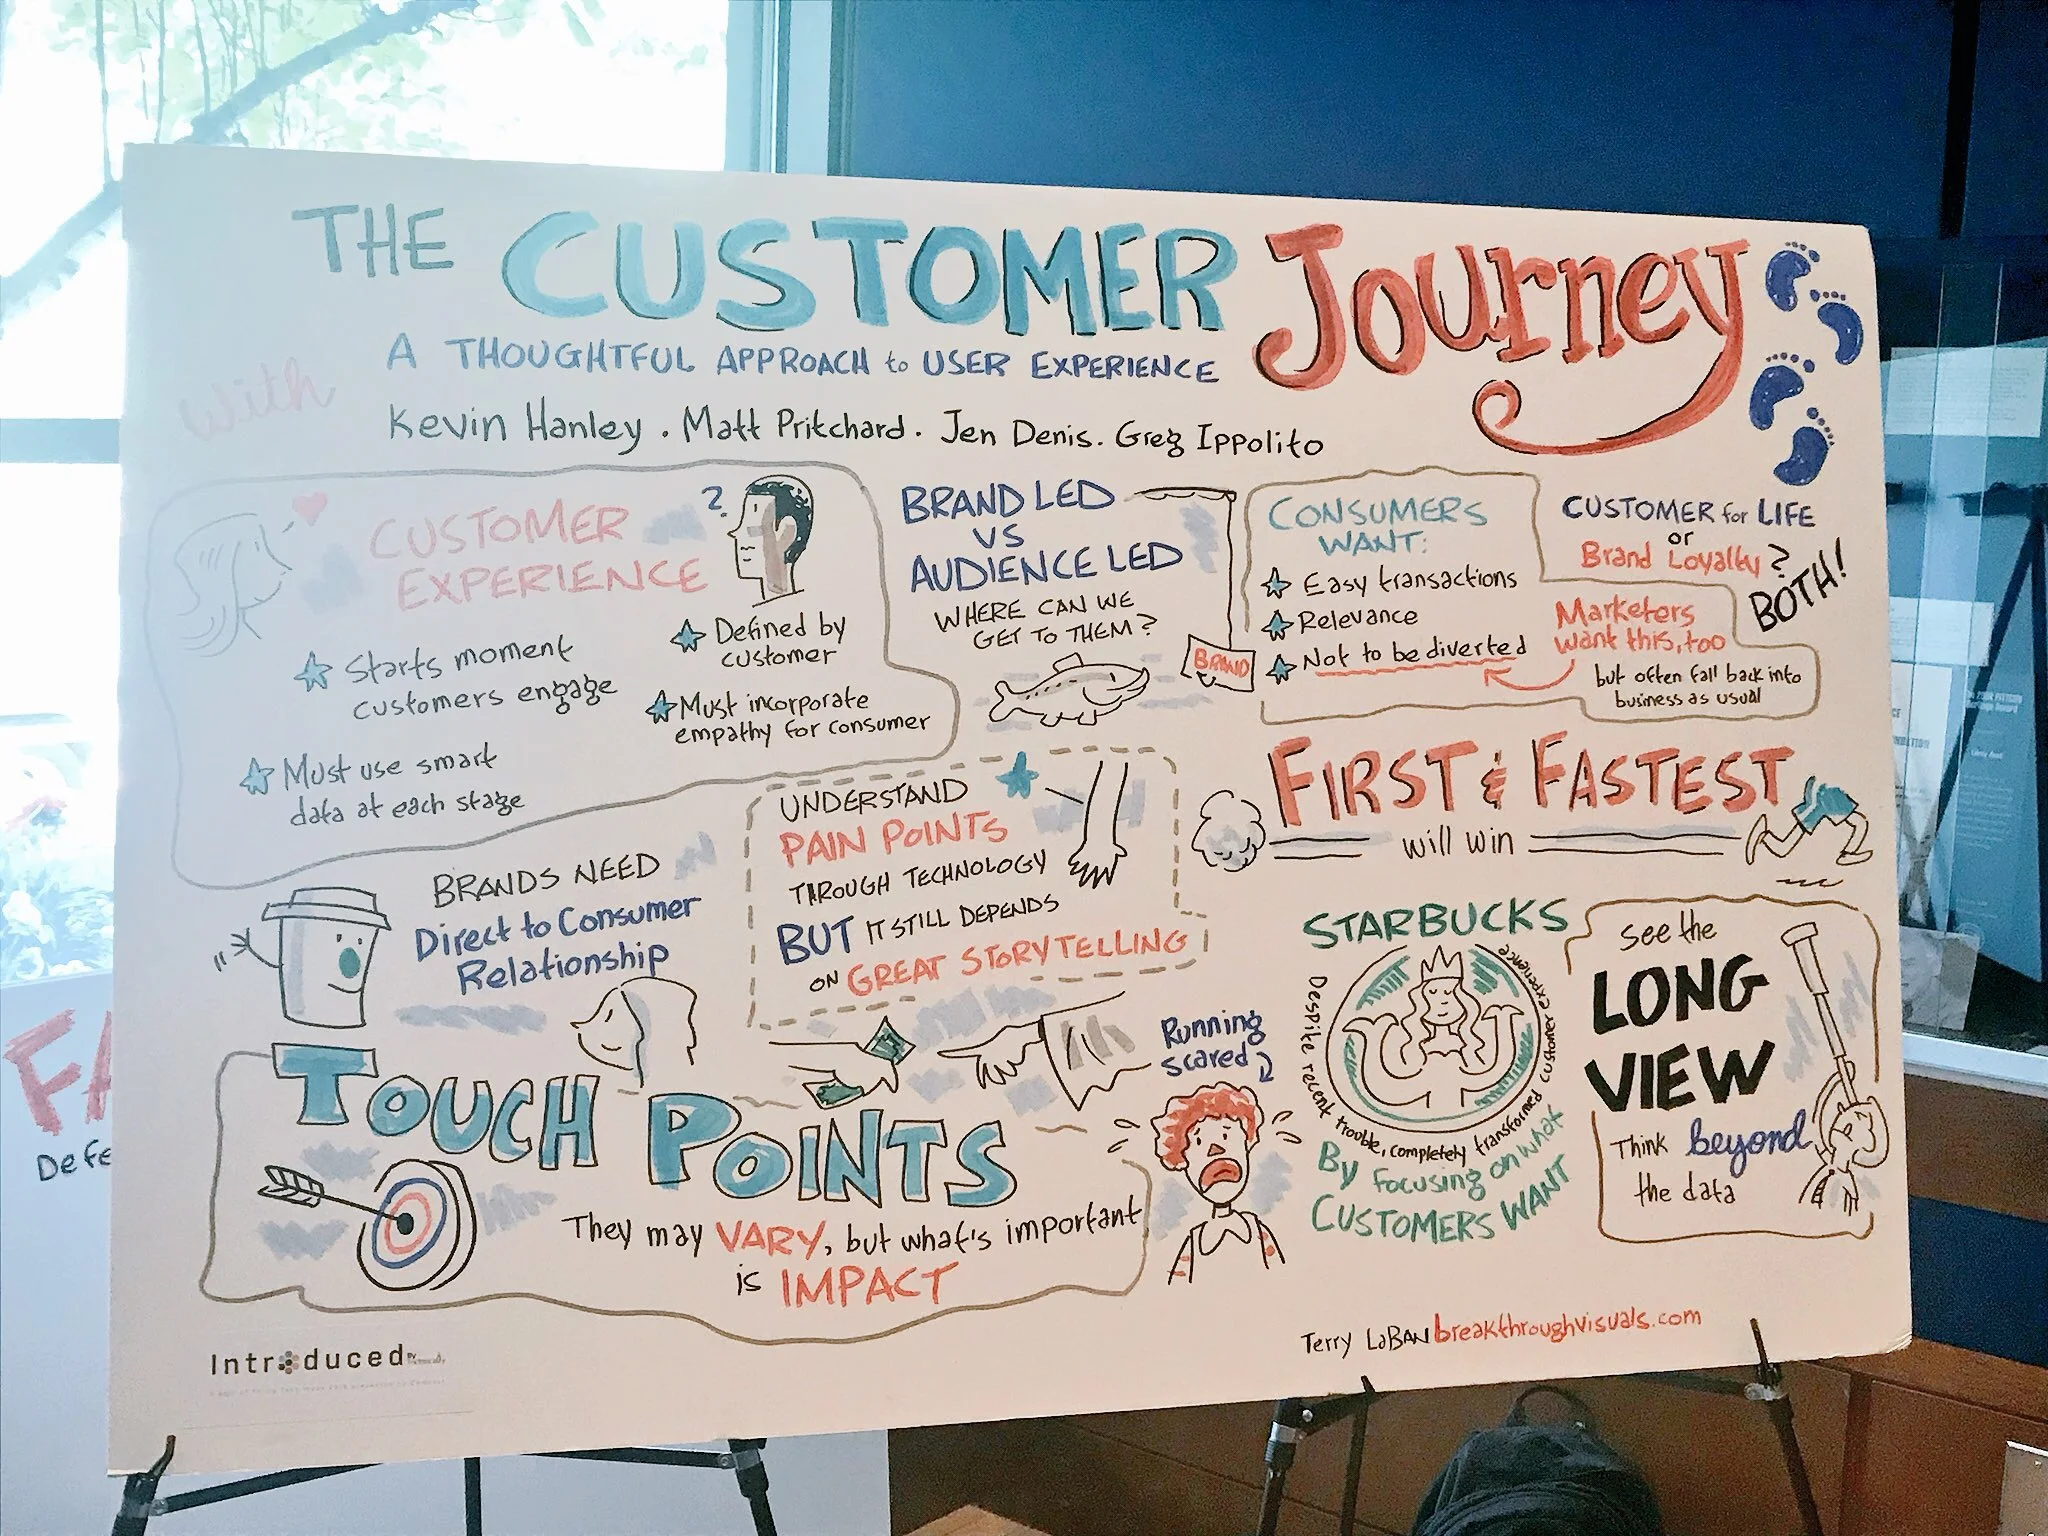 THE CUSTOMER Journey
A THOUGHTFUL APPROACH to USER EXPERIENCE
with
Kevin Hanley . Matt Pritchard . Jen Denis . Greg Ippolito
CUSTOMER
EXPERIENCE
?
Starts moment
customers engage
Must use smart
data at each stage
Defined by
customer
Must incorporate
empathy for consumer
BRAND LED
VS
AUDIENCE LED
WHERE CAN WE
GET TO THEM?
BRAND
CONSUMERS
WANT:
Easy transactions
Relevance
Not to be diverted
Marketers
want this, too
but often fall back into
business as usual
CUSTOMER for LIFE
or
Brand Loyalty?
BOTH!
BRANDS NEED
Direct to Consumer
Relationship
UNDERSTAND
PAIN POINTS
THROUGH TECHNOLOGY
BUT IT STILL DEPENDS
ON GREAT STORYTELLING
FIRST & FASTEST
will win
TOUCH POINTS
They may VARY, but what's important
is IMPACT
Running
scared
STARBUCKS
Despite recent trouble, completely transformed customer experience
By focusing on what
CUSTOMERS WANT
see the
LONG
VIEW
Think beyond
the data
Introduced
Terry LaBAN breakthroughvisuals.com
FA
Defe